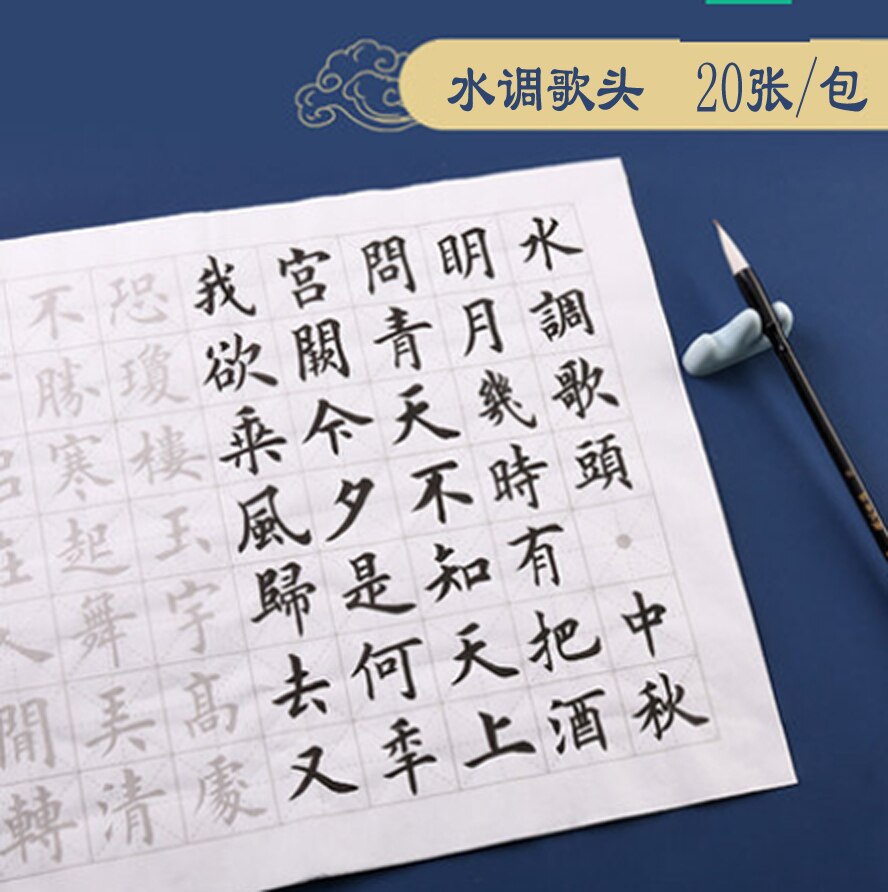 水调歌头 20张/包
水調歌頭·中秋
明月幾時有把酒
問青天不知天上
宮闕今夕是何秊
我欲乗風歸去又
恐瓊樓玉宇髙處
不勝寒起舞弄清
在人間轉